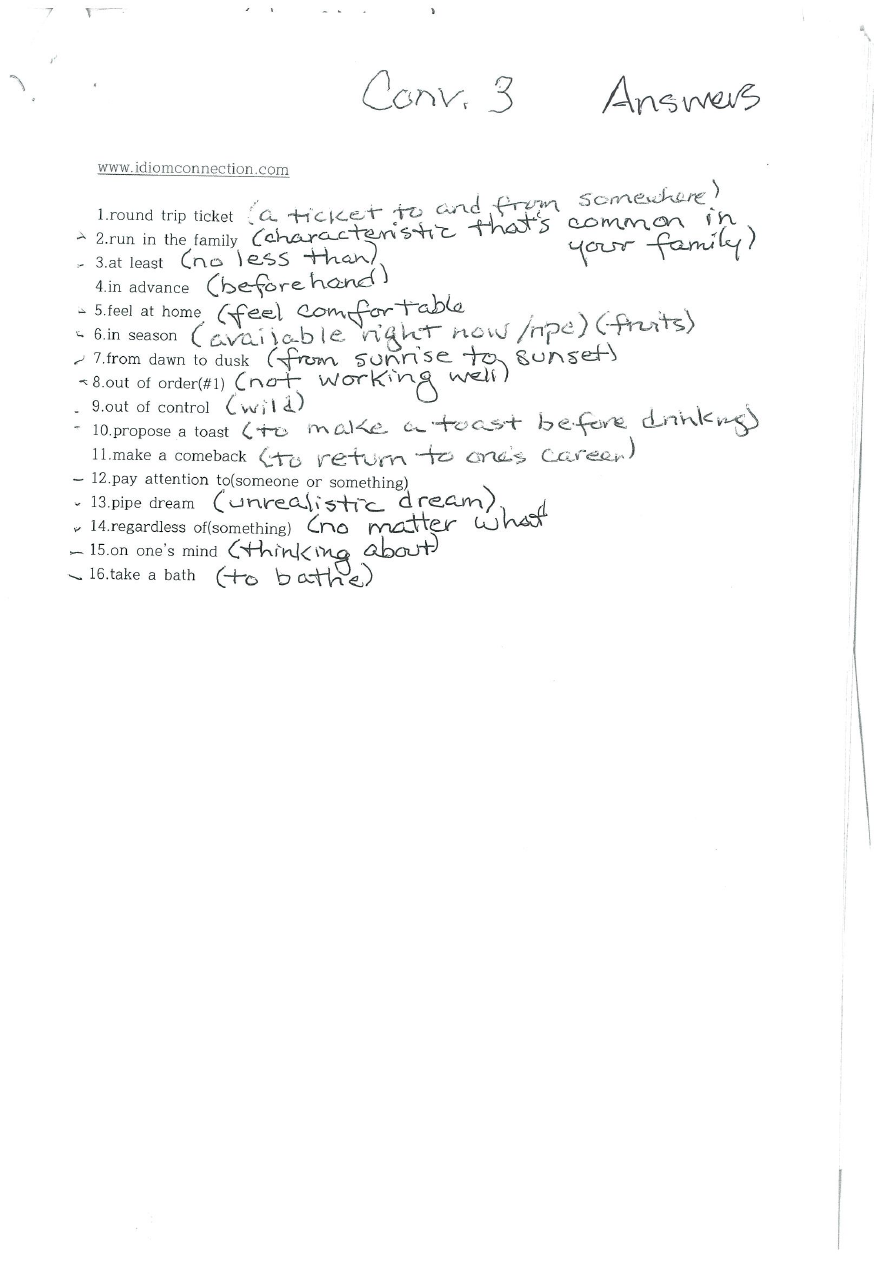 Conv. 3 Answers
www.idiomconnection.com
1.round trip ticket (a ticket to and from somewhere)
2.run in the family (characteristic that's common in
your family)
3.at least (no less than)
4.in advance (beforehand)
5.feel at home (feel comfortable
6.in season (available right now/ripe) (fruits)
7.from dawn to dusk (from sunrise to sunset)
8.out of order(#1) (not working well)
9.out of control (wild)
10.propose a toast (to make a toast before drinking)
11.make a comeback (to return to one's career)
12.pay attention to(someone or something)
13.pipe dream (unrealistic dream)
14.regardless of(something) (no matter what
15.on one's mind (thinking about)
16.take a bath (to bathe)